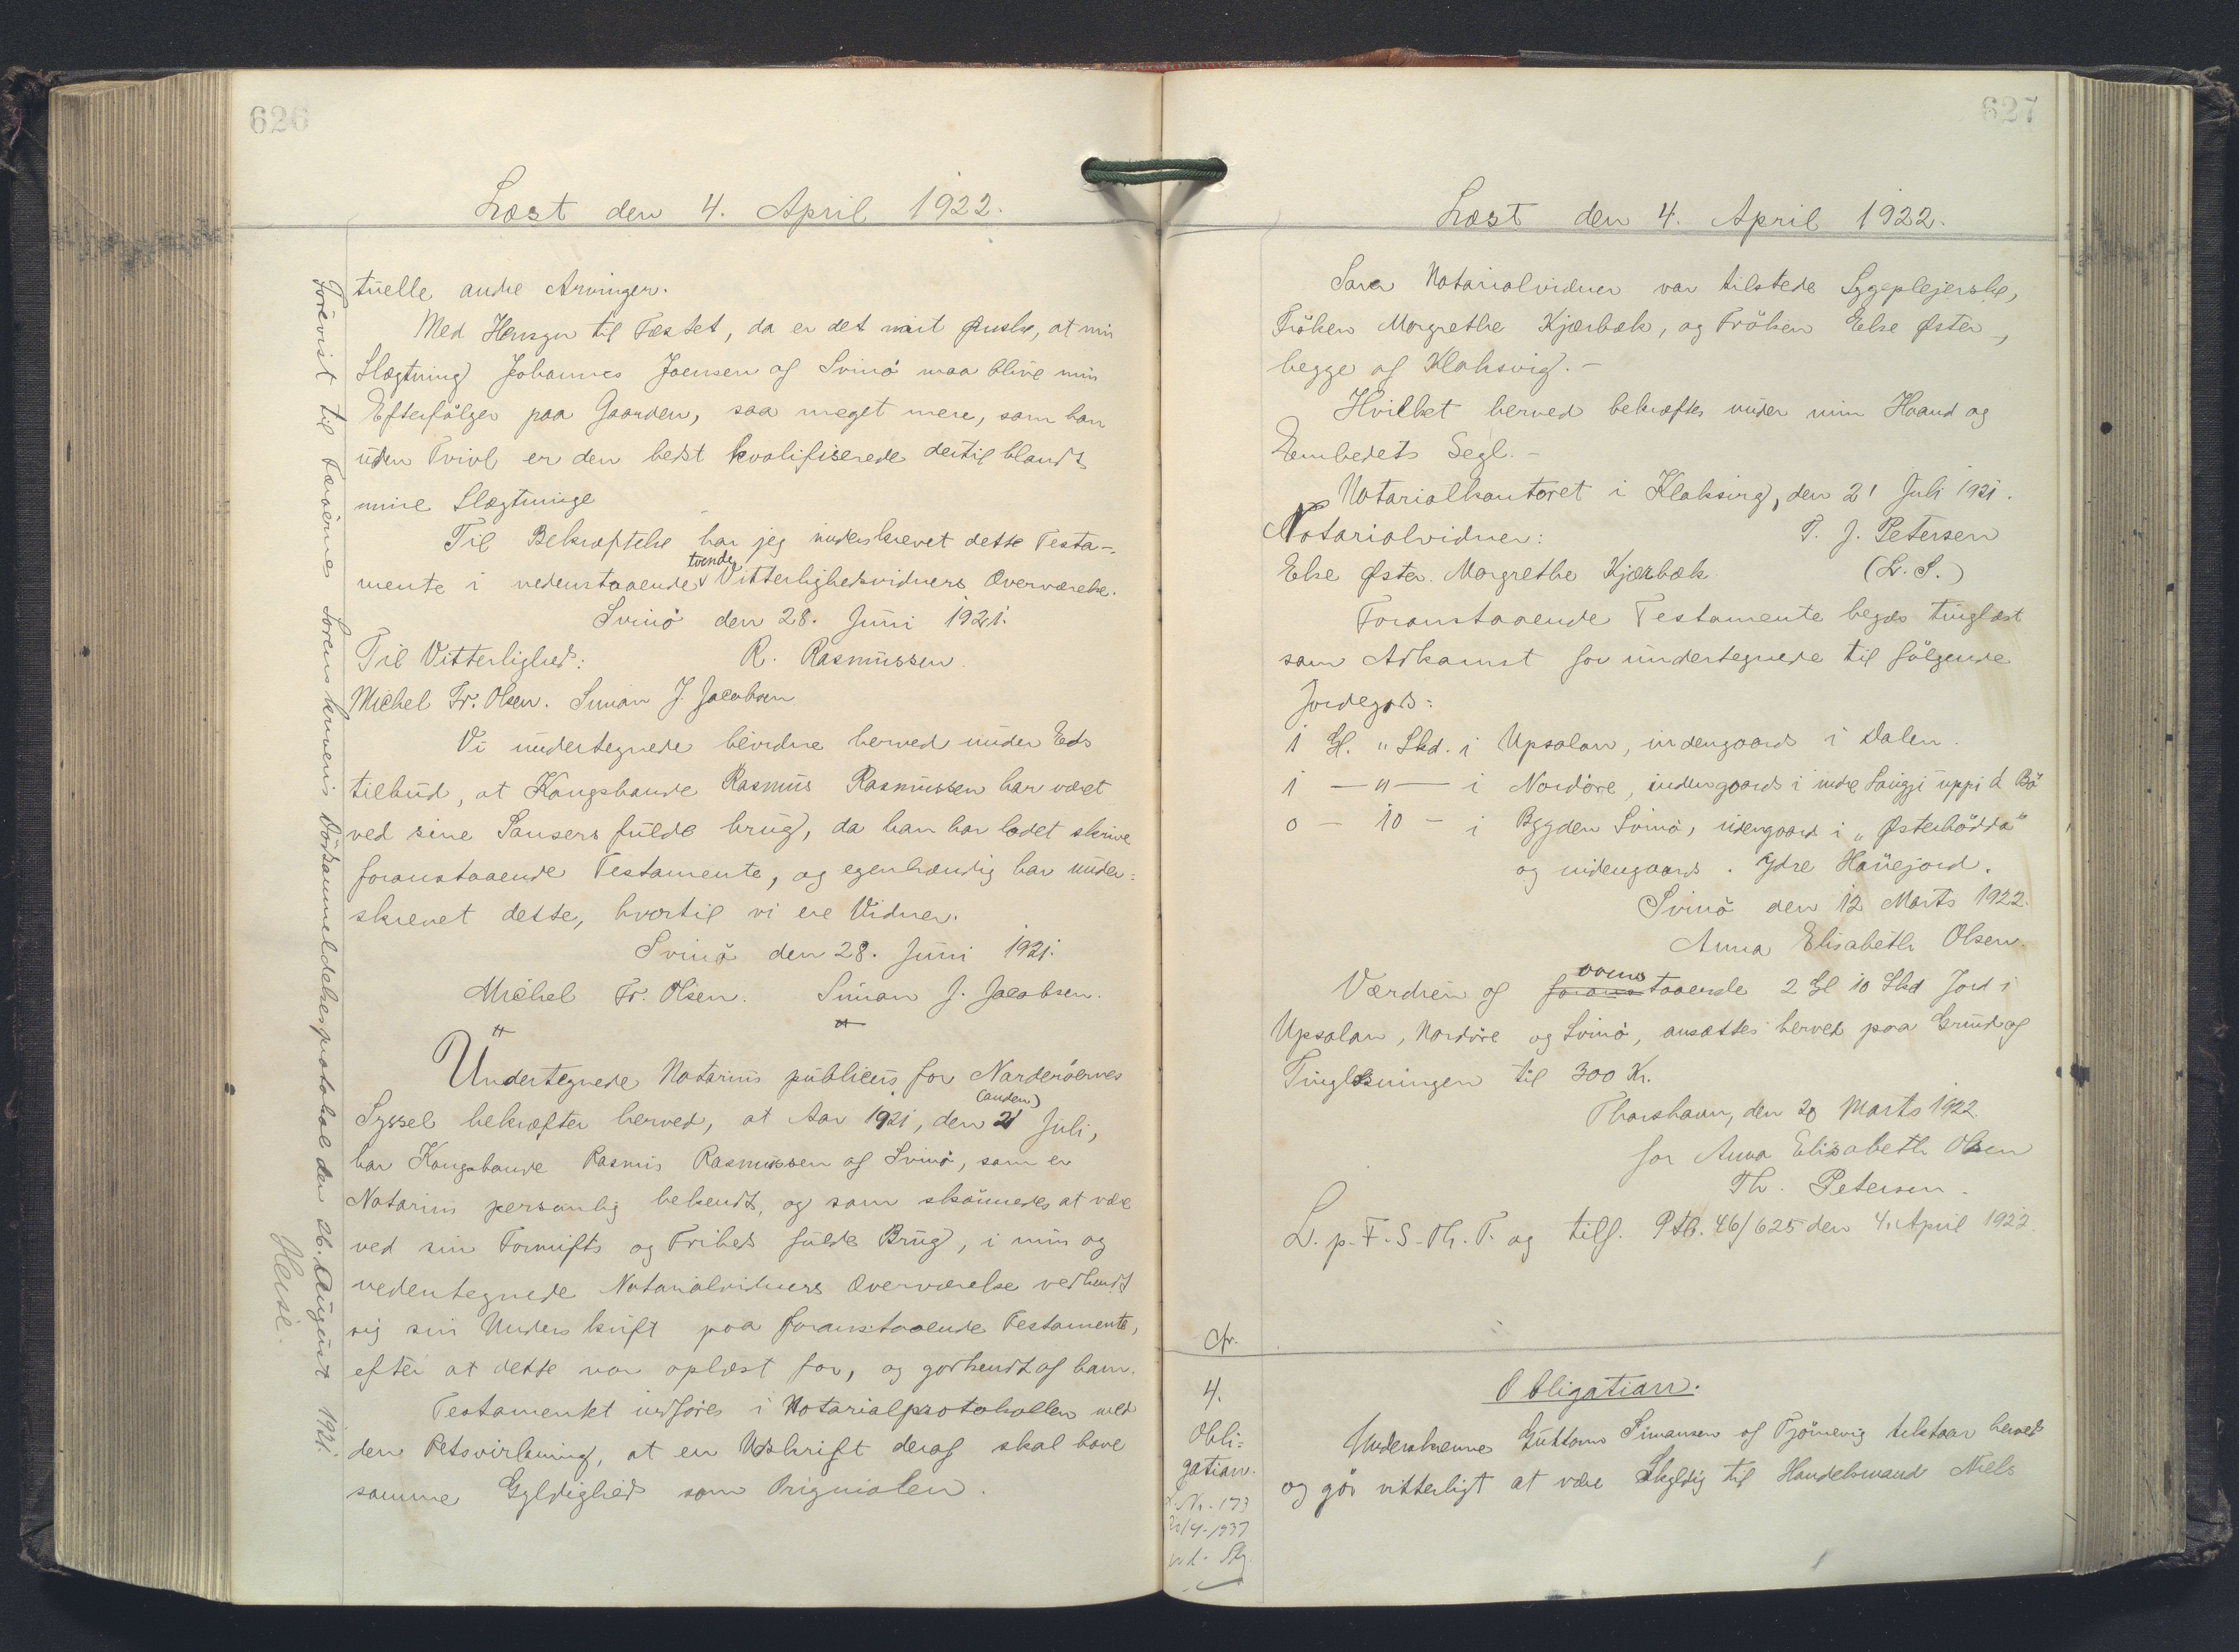 626
Læst den 4. April 1922.
tuelle andre Arvinger.
Med Hensyn til Fæstet, da er det mit Ønske, at min
Slægtning Johannes Joensen af Svinö maa blive min
Efterfölger paa Gaarden, saa meget mere, som han
uden Tvivl er den bedst kvalifiserede dertil blandt
mine Slægtninge
Til Bekræftelse har jeg underskrevet dette Testa-
mente i nedenstaaende tvende Vitterlighedsvidners Overværelse.
Svinö den 28. Juni 1921.
Til Vitterlighed: R. Rasmussen.
Michel Fr. Olsen. Simon J. Jacobsen
Vi undertegnede bevidne herved under Eds
tilbud, at Kongsbonde Rasmus Rasmussen har været
ved sine Sansers fulde brug, da han har ladet skrive
foranstaaende Testamente, og egenhændig har under=
skrevet dette, hvortil vi ere Vidner.
Svinö den 28. Juni 1921.
Michel Fr. Olsen. Simon J. Jacobsen.
Undertegnede Notarius publicus for Norderöernes
Syssel bekræfter herved, at Aar 1921, den 2' (anden) Juli,
har Kongsbonde Rasmus Rasmussen af Svinö, som er
Notarius personlig bekendt, og som skönnedes at være
ved sin Fornufts og Friheds fulde Brug, i min og
nedentegnede Notarialvidners Overværelse vedkendt
sig sin Underskrift paa foranstaaende Testamente,
efter at dette var oplæst for, og godkendt af ham.
Testamentet indföres i Notarialprotokollen med
den Retsvirkning, at en Udskrift deraf skal have
samme Gyldighed som Originalen.
Forevist til Færöernes Sorenskriveris Dödsanmeldelsesprotokol den 26. August 1921.
Heise.
627
Læst den 4. April 1922.
Som Notarialvidner var tilstede Sygeplejerske,
Fröken Margrethe Kjærbæk, og Fröken Else Øster,
begge af Klaksvig.-
Hvilket herved bekræftes under min Haand og
Embedets Segl.-
Notarialkontoret i Klaksvig, den 2' Juli 1921.
Notarialvidner: T. J. Petersen
Else Øster. Margrethe Kjærbæk. (L. S.)
Foranstaaende Testamente begæs tinglæst
som Adkomst for undertegnede til fölgende
Jordegods:
1 Gl. " Skd. i Upsalon, indengaards i Dalen.
1 — " — i Nordöre, indengaards i indre Laigji uppi á Bö
0 — 10 — i Bygden Svinö, indengaard i "Østerbödda"
og indengaards. Ydre Haüejord.
Svinö den 12 Marts 1922.
Anna Elisabeth Olsen.
Værdien af foranstaaende ovens 2 Gl 10 Skd Jord i
Upsalon, Nordöre og Svinö, ansættes herved paa Grund af
Tinglæsningen til 300 Kr.
Thorshavn, den 20 Marts 1922.
for Anna Elisabeth Olsen
Th. Petersen.
L. p. F. S. Th. T. og tilf. Ptb. 46/625 den 4. April 1922.
4.
Obli=
gation.
Obligation.
Underskrevne Guttorm Simonsen af Tjörnevig tilstaar herved
og gör vitterligt at være skyldig til Handelsmand Niels